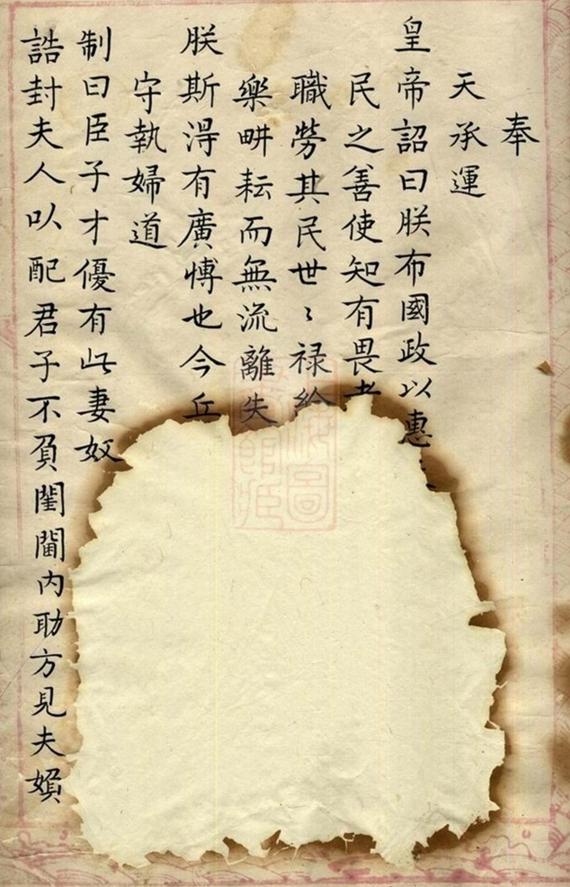 奉
天承運
皇帝詔曰朕布國政以惠
民之善使知有畏
職勞其民世〻禄給
樂畊耘而無流離失
朕斯淂有廣博也今丘
守執婦道
制曰臣子才優有此妻奴
誥封夫人以配君子不負閨閫內助方見夫